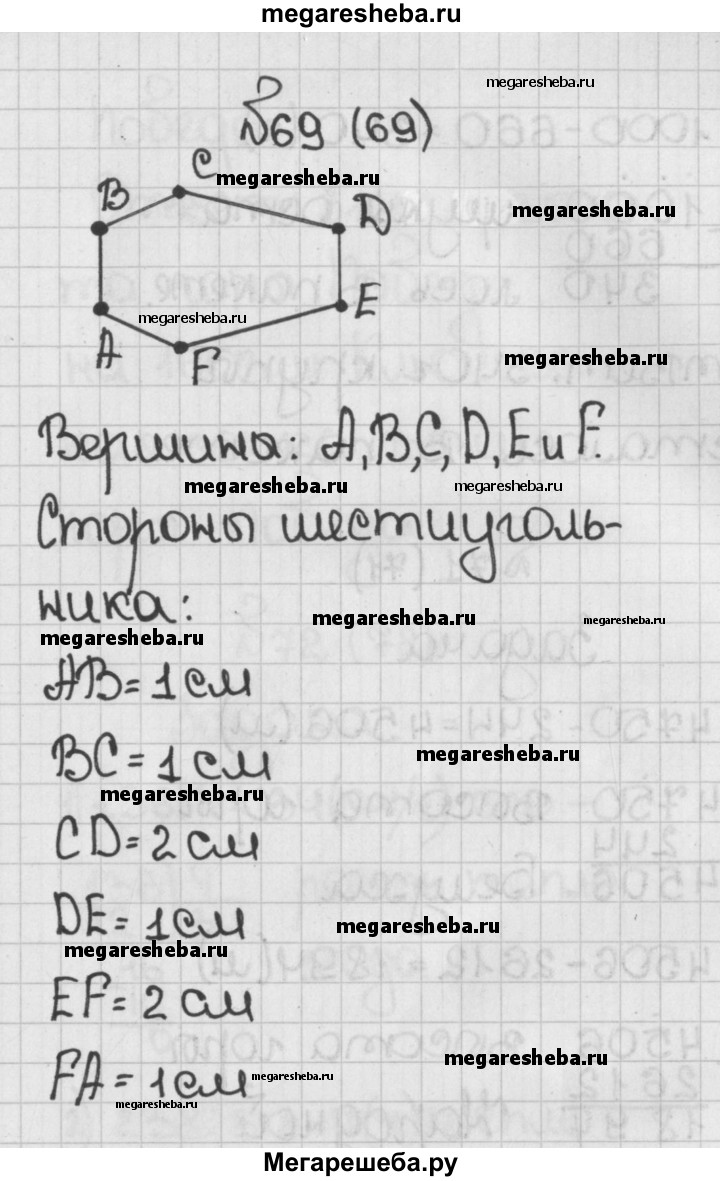 megaresheba.ru
megaresheba.ru
№69 (69)
C
megaresheba.ru
B
D
megaresheba.ru
E
megaresheba.ru
A
F
megaresheba.ru
Вершины: A, B, C, D, E и F.
megaresheba.ru
megaresheba.ru
Стороны шестиуголь-
ника:
megaresheba.ru
megaresheba.ru
megaresheba.ru
AB = 1 см
BC = 1 см
megaresheba.ru
megaresheba.ru
CD = 2 см
DE = 1 см
megaresheba.ru
megaresheba.ru
EF = 2 см
FA = 1 см
megaresheba.ru
megaresheba.ru
megaresheba.ru
Мегарешеба.ру